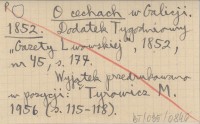 O cechach w Galicji.
1852. Dodatek Tygodniowy
„Gazety Lwowskiej", 1852,
nr 45, s. 177.
Wyjątek przedrukowano
w pozycji: Tyrowicz M.
1956 (s. 115-118).